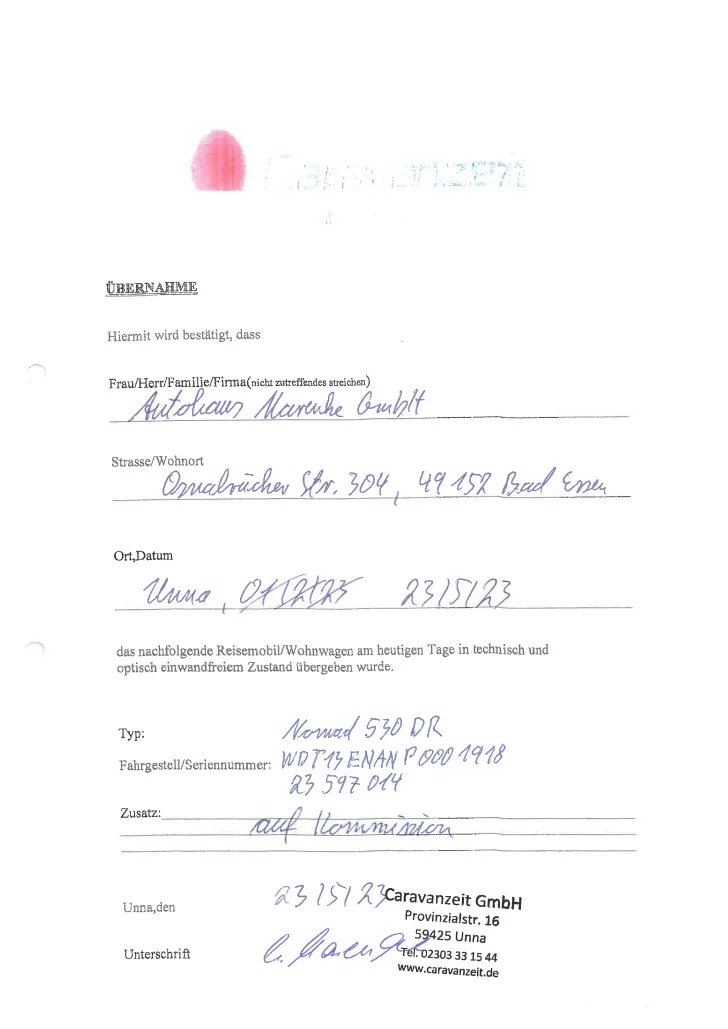 Caravanzeit
ÜBERNAHME
Hiermit wird bestätigt, dass
Frau/Herr/Familie/Firma(nicht zutreffendes streichen)
Autohaus Marenke GmbH
Strasse/Wohnort
Osnabrücker Str. 304, 49152 Bad Essen
Ort,Datum
Unna, 23/5/23
das nachfolgende Reisemobil/Wohnwagen am heutigen Tage in technisch und
optisch einwandfreiem Zustand übergeben wurde.
Typ: Nomad 530 DR
Fahrgestell/Seriennummer: WDT13ENANP0001918
23 597 014
Zusatz:
auf Kommission
Unna,den 23/5/23
Caravanzeit GmbH
Provinzialstr. 16
59425 Unna
Unterschrift
Tel. 02303 33 15 44
www.caravanzeit.de